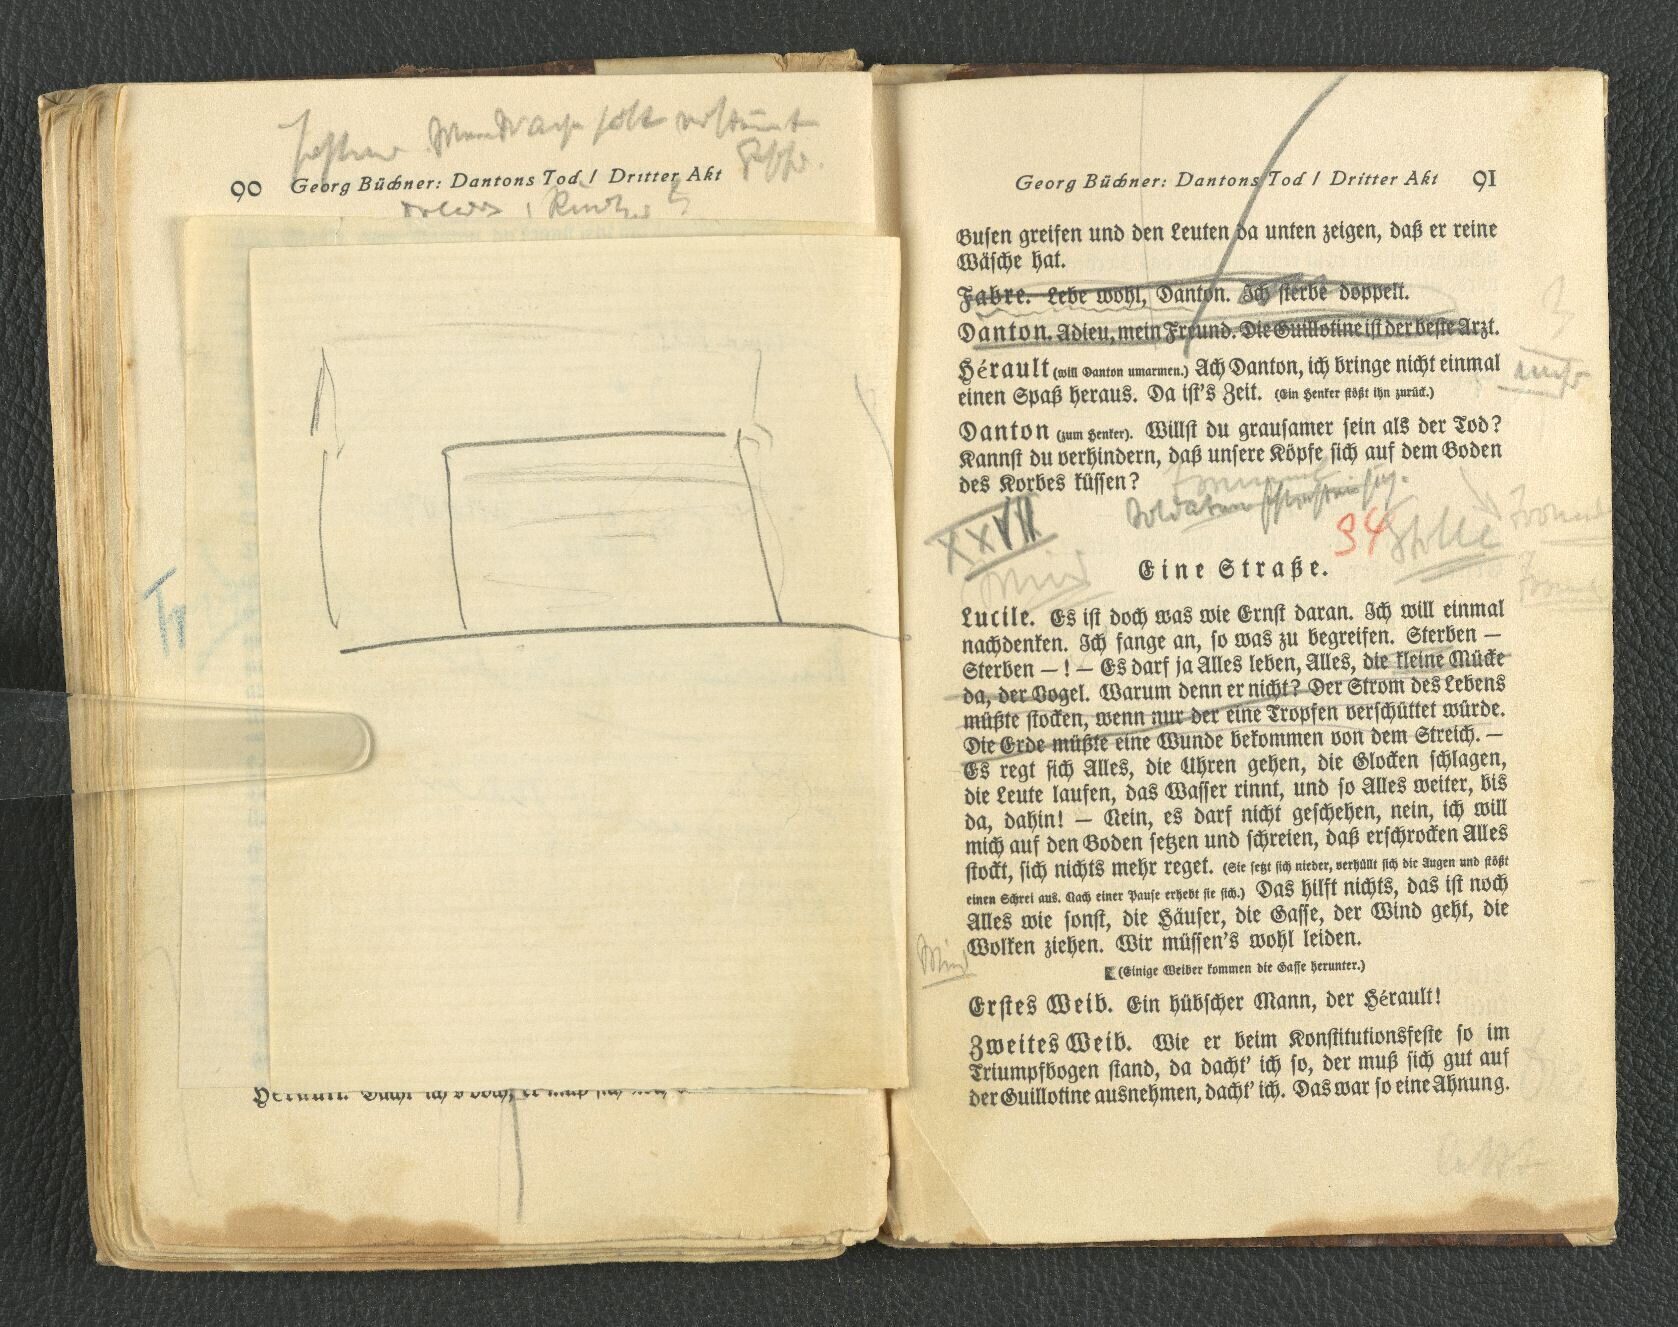 90 Georg Büchner: Dantons Tod / Dritter Akt
Georg Büchner: Dantons Tod / Dritter Akt 91
Busen greifen und den Leuten da unten zeigen, daß er reine
Wäsche hat.
Fabre. Lebe wohl, Danton. Ich sterbe doppelt.
Danton. Adieu, mein Freund. Die Guillotine ist der beste Arzt.
Hérault (will Danton umarmen.) Ach Danton, ich bringe nicht einmal
einen Spaß heraus. Da ist's Zeit. (Ein Henker stößt ihn zurück.)
Danton (zum Henker). Willst du grausamer sein als der Tod?
Kannst du verhindern, daß unsere Köpfe sich auf dem Boden
des Korbes küssen?
XXVII
34
Eine Straße.
Lucile. Es ist doch was wie Ernst daran. Ich will einmal
nachdenken. Ich fange an, so was zu begreifen. Sterben —
Sterben — ! — Es darf ja Alles leben, Alles, die kleine Mücke
da, der Vogel. Warum denn er nicht? Der Strom des Lebens
müßte stocken, wenn nur der eine Tropfen verschüttet würde.
Die Erde müßte eine Wunde bekommen von dem Streich. —
Es regt sich Alles, die Uhren gehen, die Glocken schlagen,
die Leute laufen, das Wasser rinnt, und so Alles weiter, bis
da, dahin! — Nein, es darf nicht geschehen, nein, ich will
mich auf den Boden setzen und schreien, daß erschrocken Alles
stockt, sich nichts mehr reget. (Sie setzt sich nieder, verhüllt sich die Augen und stößt
einen Schrei aus. Nach einer Pause erhebt sie sich.) Das hilft nichts, das ist noch
Alles wie sonst, die Häuser, die Gasse, der Wind geht, die
Wolken ziehen. Wir müssen's wohl leiden.
(Einige Weiber kommen die Gasse herunter.)
Erstes Weib. Ein hübscher Mann, der Hérault!
Zweites Weib. Wie er beim Konstitutionsfeste so im
Triumpfbogen stand, da dacht' ich so, der muß sich gut auf
der Guillotine ausnehmen, dacht' ich. Das war so eine Ahnung.